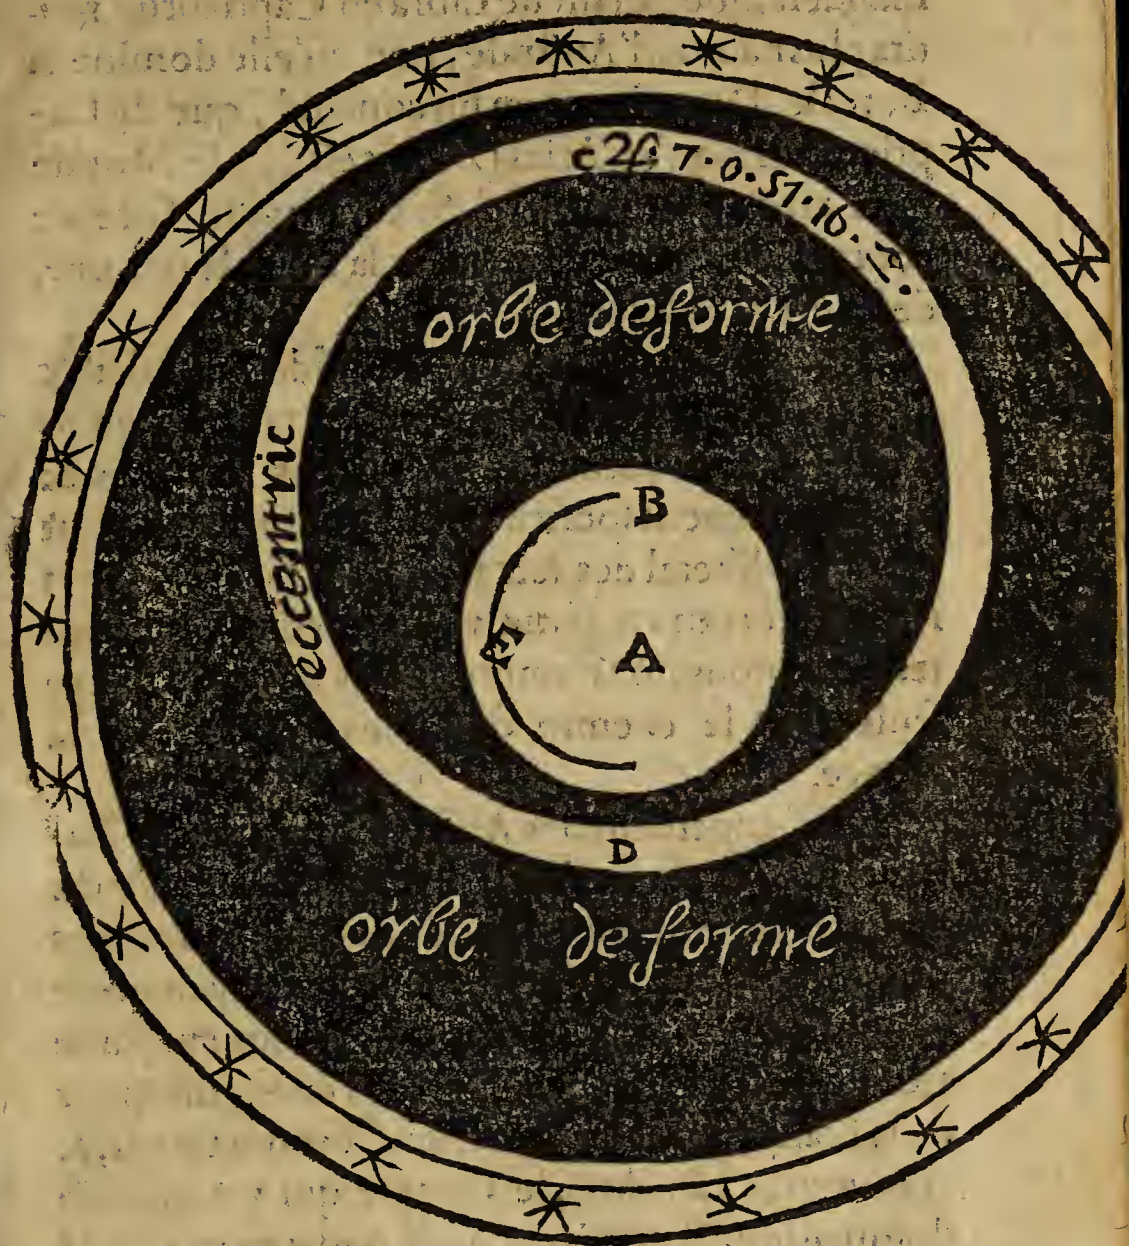 c 2ſ. 7. 0. 57. 16.
orbe deforme
eccentric
B
E
A
D
orbe deforme